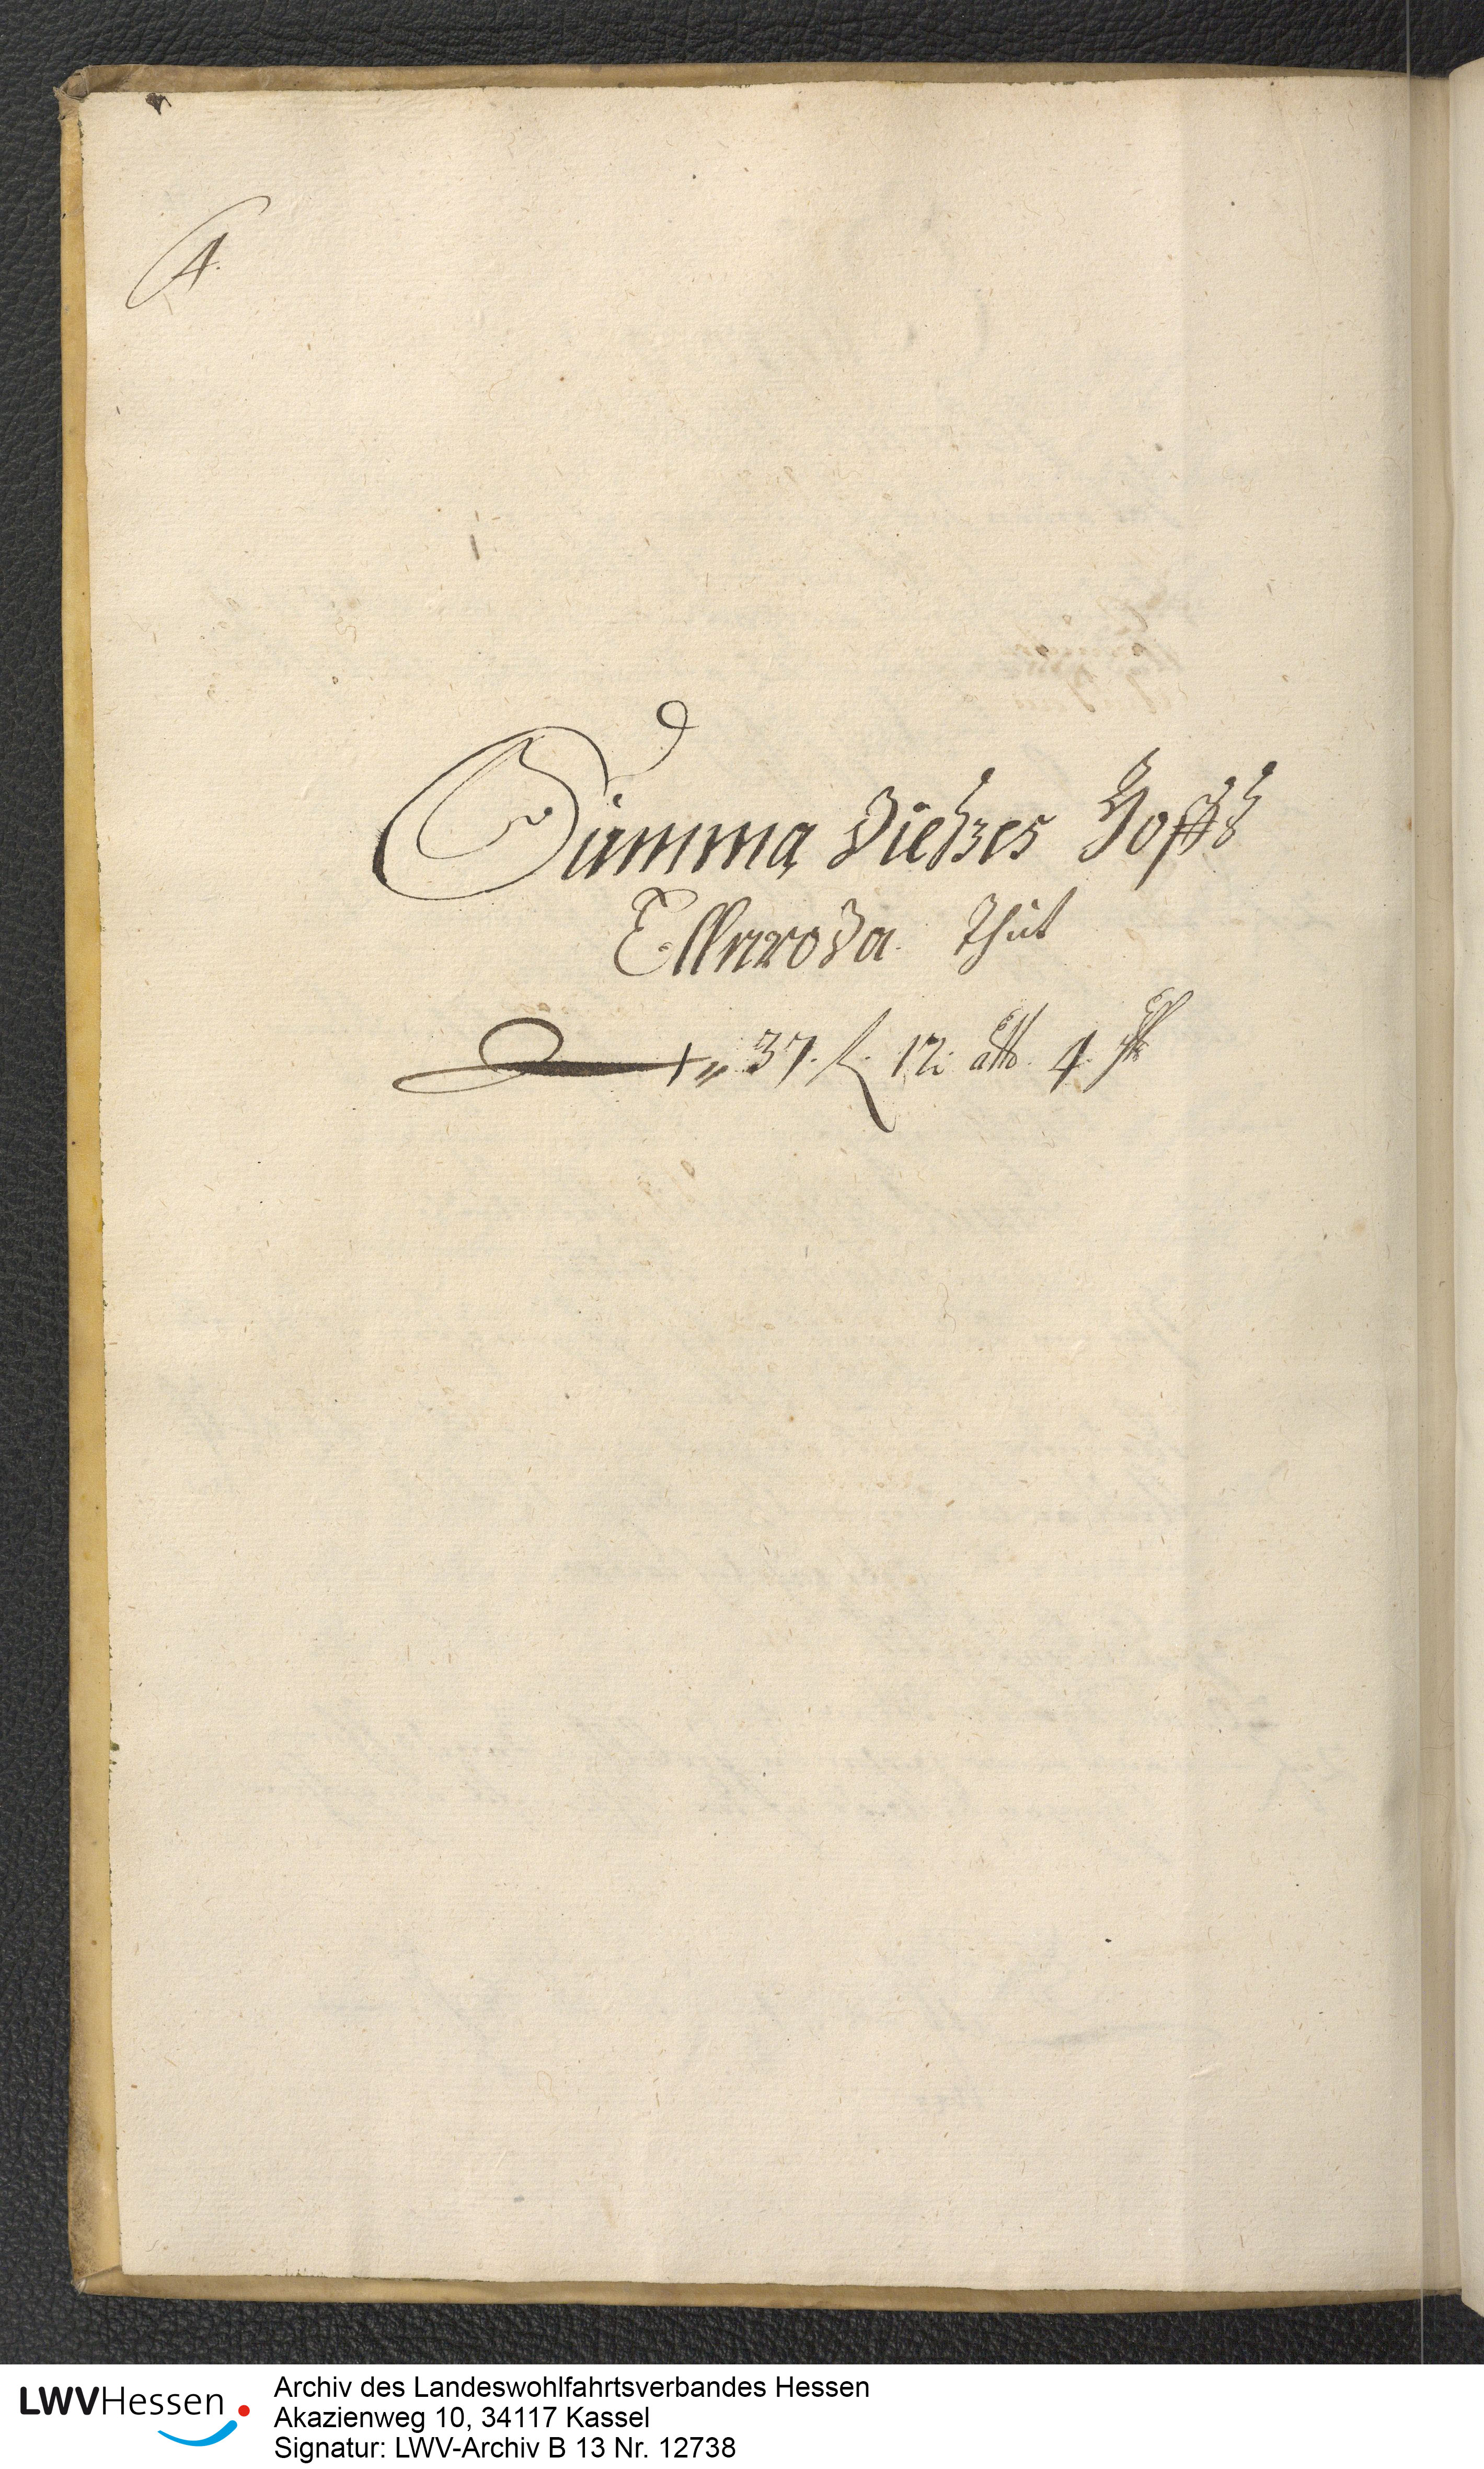 4.
Summa dießes Hoffs
Ellnroda thut
37. fl. 12. alb. 4 hlr
LWVHessen
Archiv des Landeswohlfahrtsverbandes Hessen
Akazienweg 10, 34117 Kassel
Signatur: LWV-Archiv B 13 Nr. 12738